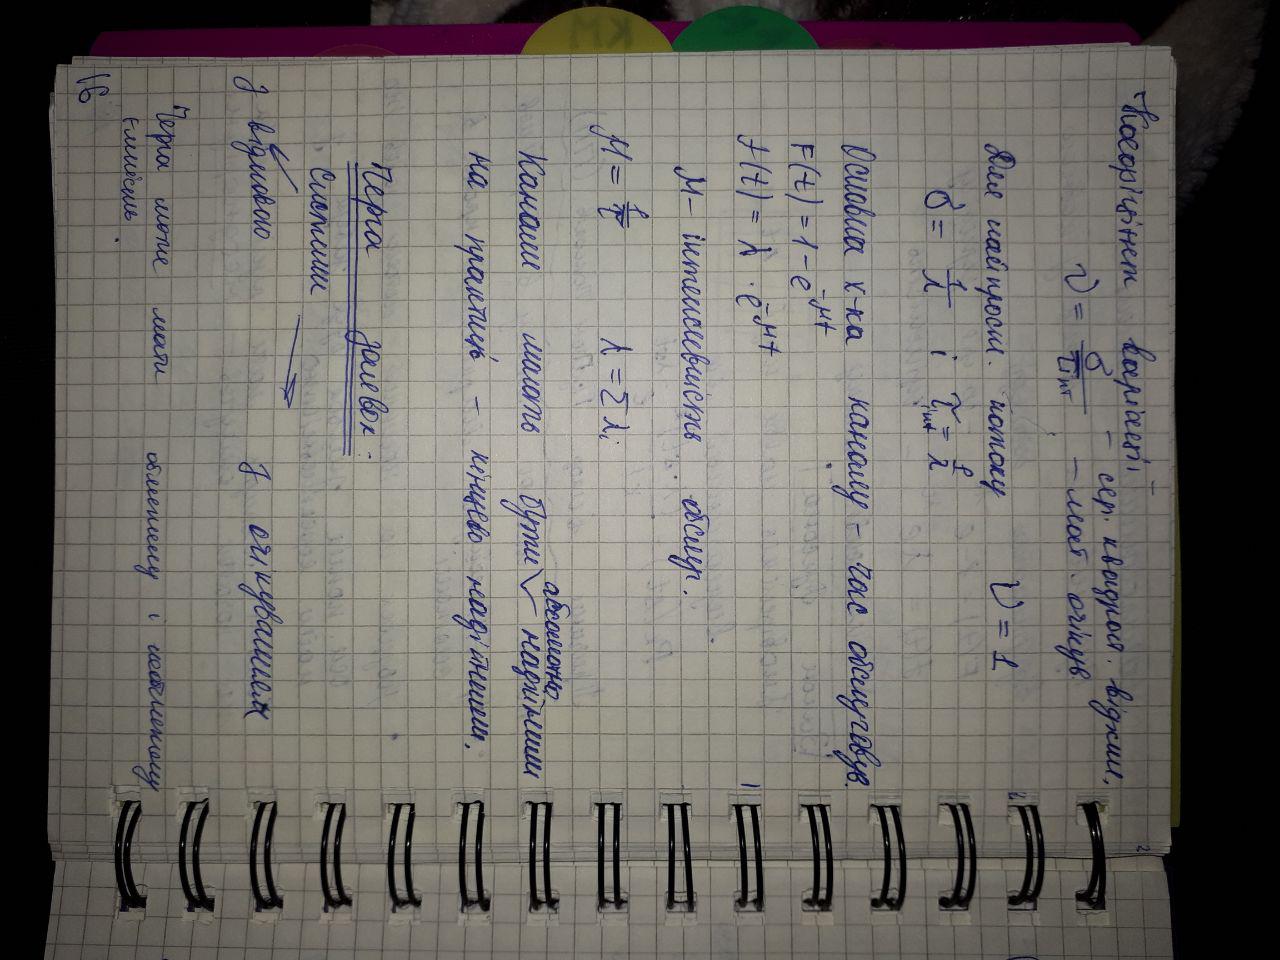 Коефіцієнт варіації
υ = σ / τ̅інт – сер. квадрат. відхил. – мат. очікув
Для найпрост. потоку υ = 1
σ = 1/λ і τ̅інт = 1/λ
Основна х-ка каналу – час обслуговув.
F(t) = 1 – e^-μt
f(t) = λ · e^-μt
μ – інтенсивність обслуг.
μ = 1/τ̅ λ = Σ λi
Канали мають бути абсолютно надійними
на практиці – кінцево надійними.
Черга заявок:
Системи
з відмовою з очікуванням
Черга може мати обмежену і необмежену
ємність.
16